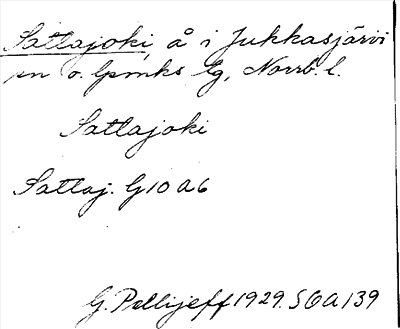 Sattajoki, å i Jukkasjärvi
sn o. lpmks lg, Norrb. l.
Sattajoki
Sattaj. G10 a6
G. Pellijeff 1929. SOA 139